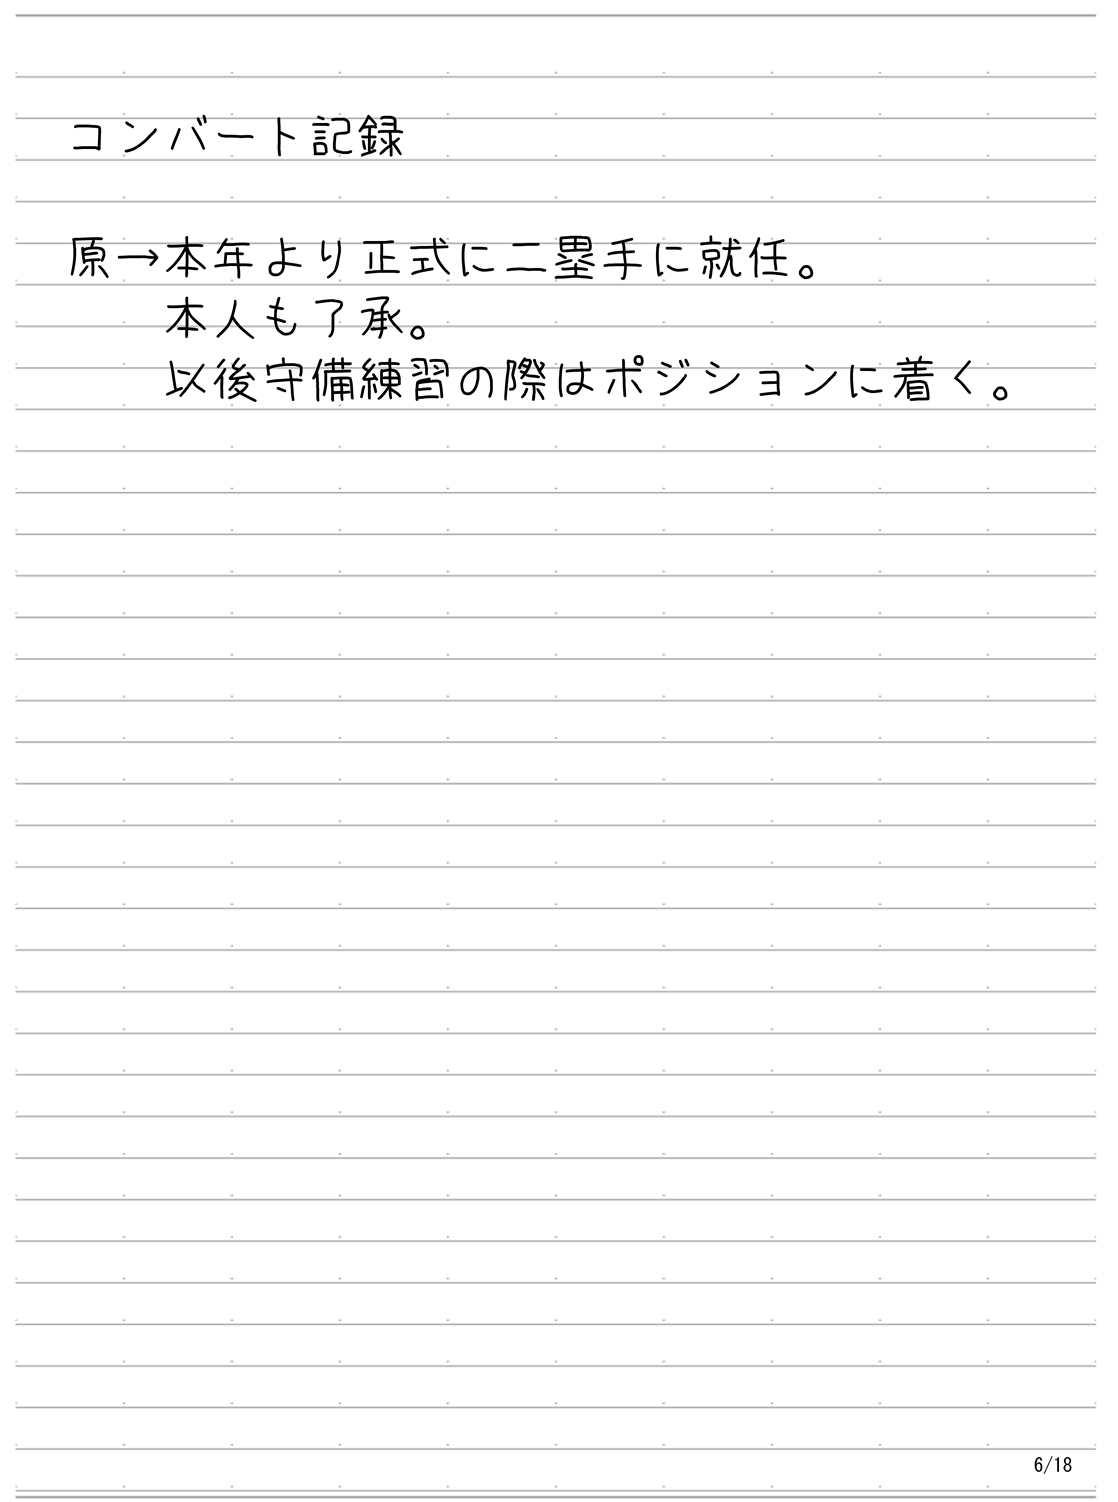 コンバート記録
原→本年より正式に二塁手に就任。
本人も了承。
以後守備練習の際はポジションに着く。
6/18